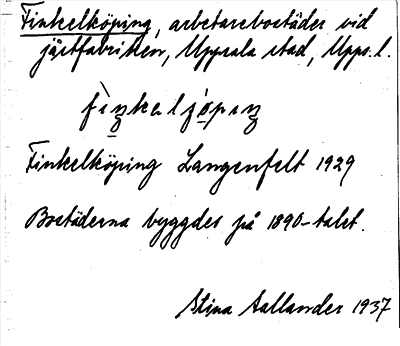 Finkelköping, arbetarebostäder vid
jästfabriken, Uppsala stad, Upps. l.
Finkelköping Langenfelt 1929
Bostäderna byggdes på 1890-talet.
Stina Aallander 1937